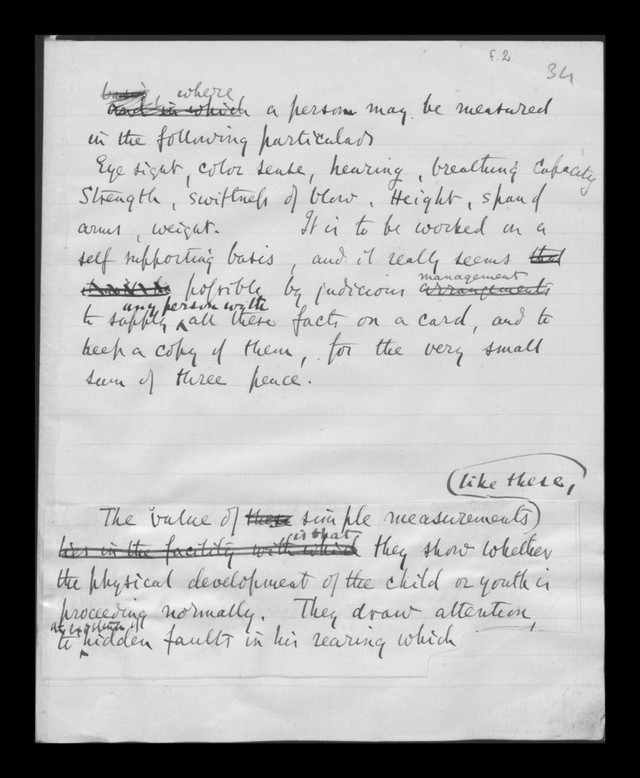 F. 2
34
where
and in which a person may be measured
in the following particulars
Eye sight, color sense, hearing, breathing capacity
Strength, swiftness of blow. Height, span of
arms, weight. It is to be worked on a
self supporting basis, and it really seems that
management
possible by judicious arrangements
any person with
to supply all these facts on a card, and to
keep a copy of them, for the very small
sum of three pence.
like these,
The value of these simple measurements
is that
lies in the facility with which they show whether
the physical development of the child or youth is
proceeding normally. They draw attention
to hidden faults in his rearing which